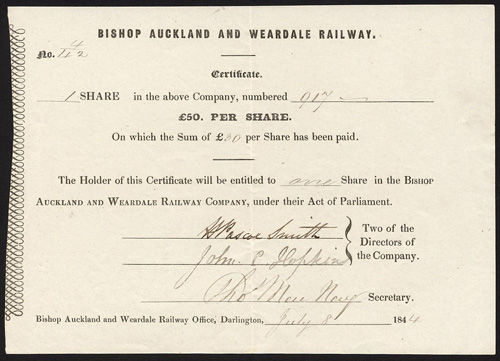 BISHOP AUCKLAND AND WEARDALE RAILWAY.
No.
Certificate.
1 SHARE in the above Company, numbered 917
£50. PER SHARE.
On which the Sum of £30 per Share has been paid.
The Holder of this Certificate will be entitled to one Share in the BISHOP
AUCKLAND AND WEARDALE RAILWAY COMPANY, under their Act of Parliament.
H Pascoe Smith
John C Hopkins
Two of the
Directors of
the Company.
Thos Secretary.
Bishop Auckland and Weardale Railway Office, Darlington, July 8 1844